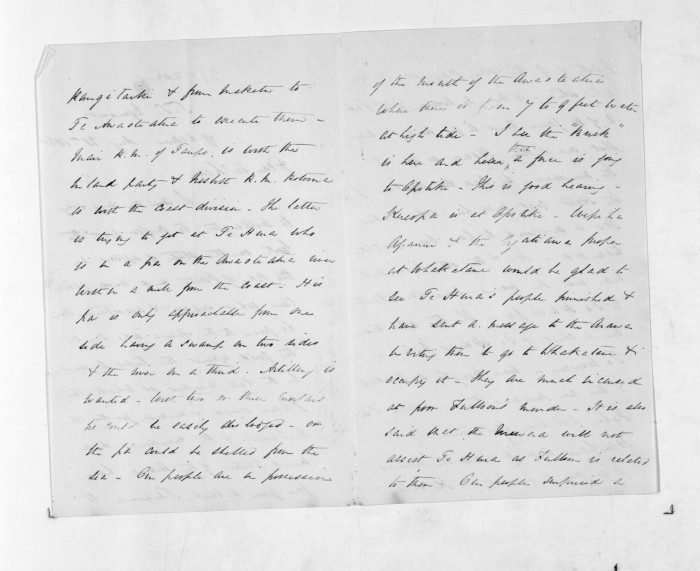 Rangitaiki & from Maketu to
Te Awaoteatua to execute them -
Mair R.M. of Taupo, is with the
inland party & Nesbitt R.M. Rotorua
is with the coast division - The latter
is trying to get at Te Hura who
is in a pa on the Awaoteatua river
within a mile from the coast - His
pa is only approachable from one
side having a swamp on two sides
& the river on a third. Artillery is
wanted - with two or three
he could be easily dislodged - or
the pa could be shelled from the
sea - Our people are in possession
of the mouth of the Awaoteatua
where there is from 7 to 9 feet water
at high tide - I see the "Brisk"
is here and hear that a force is going
to Opotiki - This is good hearing -
Kereopa is at Opotiki - Wepiha
Apanui & the Ngatiawa proper
at Whakatane would be glad to
see Te Hura's people punished &
have sent a message to the Arawa
inviting them to go to Whakatane &
occupy it - They are much incensed
at poor Fulloon's murder - It is also
said that the Urewera will not
assist Te Hura as Fulloon is related
to them - Our people surprised a